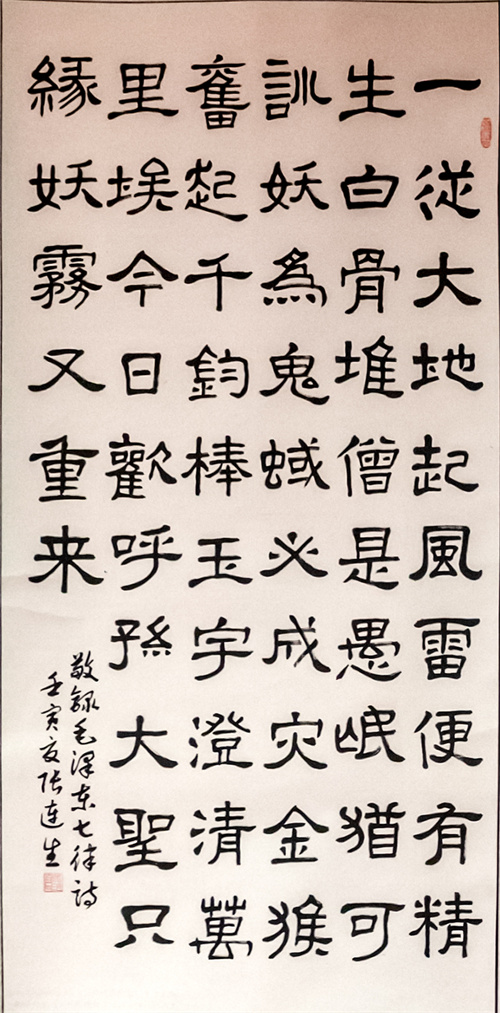 一從大地起風雷便有精
生白骨堆僧是愚氓猶可
訓妖為鬼蜮必成灾金猴
奮起千鈞棒玉宇澄清萬
里埃今日歡呼孫大聖只
緣妖霧又重来
敬録毛澤东七律詩
壬寅夏张连生